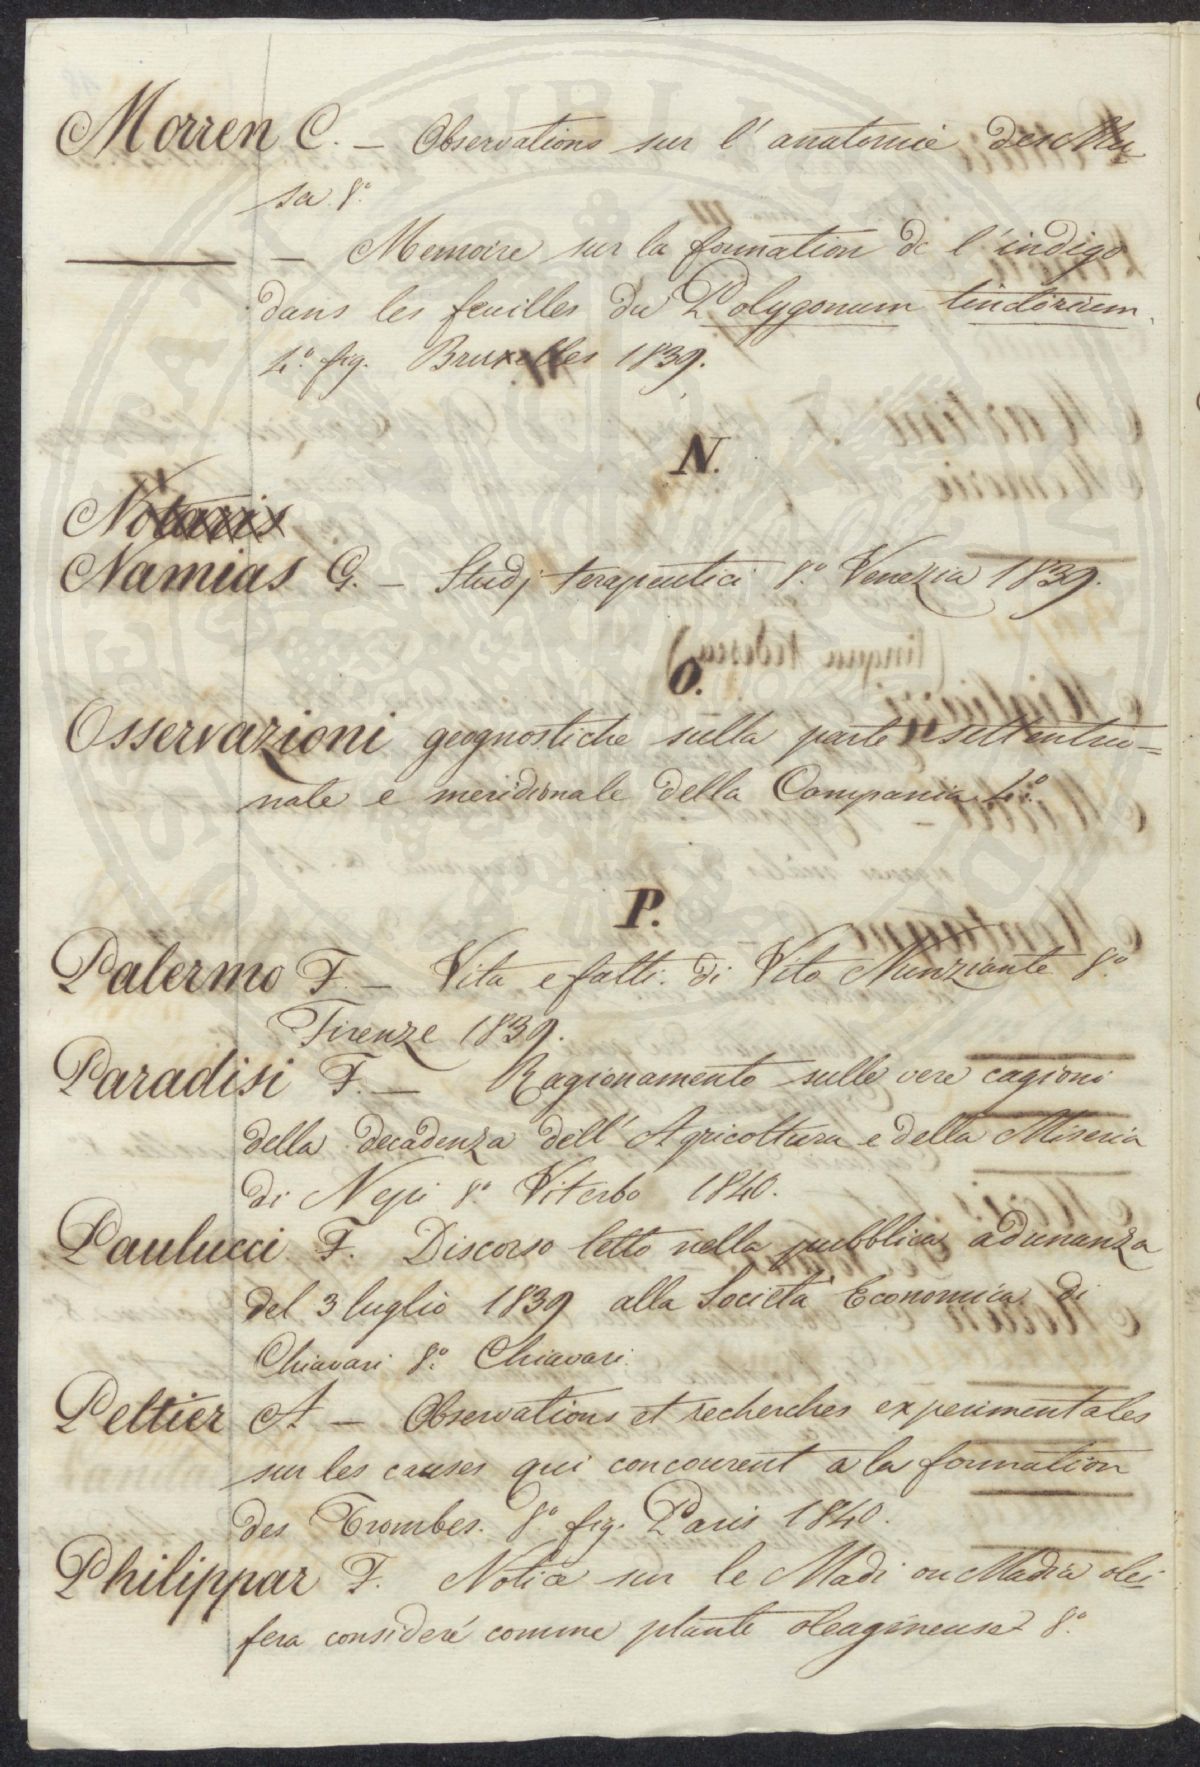 Morren C. — Observations sur l'anatomie des Mu-
sa 8.º
——— — Memoire sur la formation de l'indigo
dans les feuilles du Polygonum tinctorium.
4.º fig. Bruxelles 1839.
N.
Notaris
Namias G. — Studj terapeutici 8.º Venezia 1839.
O.
Osservazioni geognostiche sulla parte settentrio=
nale e meridionale della Campania 4.º
P.
Palermo F. — Vita e fatti di Vito Nunziante 8.º
Firenze 1839.
Paradisi F. — Ragionamento sulle vere cagioni
della decadenza dell'Agricoltura e della Miseria
di Nepi 8.º Viterbo 1840.
Paulucci F. Discorso letto nella pubblica adunanza
del 3 luglio 1839 alla Società Economica di
Chiavari 8.º Chiavari.
Peltier A — Observations et recherches experimentales
sur les causes qui concourent a la formation
des Trombes. 8.º fig. Paris 1840.
Philippar F. Notice sur le Madi ou Madia olei-
fera consideré comme plante oleagineuse 8.º